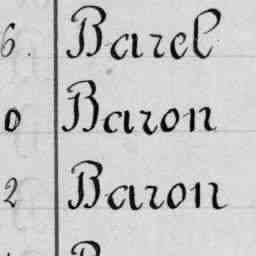 6. Barel
0 Baron
2 Baron